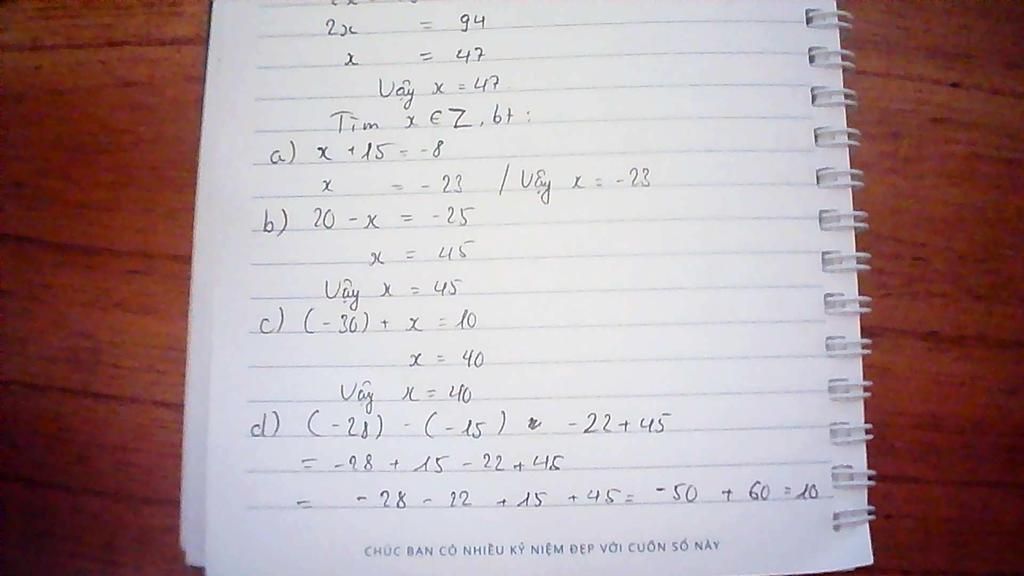 2x = 94
x = 47
Vậy x = 47.
Tìm x ∈ Z, bt :
a) x + 15 = -8
x = - 23 / Vậy x = -23
b) 20 - x = -25
x = 45
Vậy x = 45
c) (-30) + x = 10
x = 40
Vậy x = 40
d) (-28) - (-15) - 22 + 45
= -28 + 15 - 22 + 45
= - 28 - 22 + 15 + 45 = -50 + 60 = 10
CHÚC BẠN CÓ NHIỀU KỶ NIỆM ĐẸP VỚI CUỐN SỔ NÀY